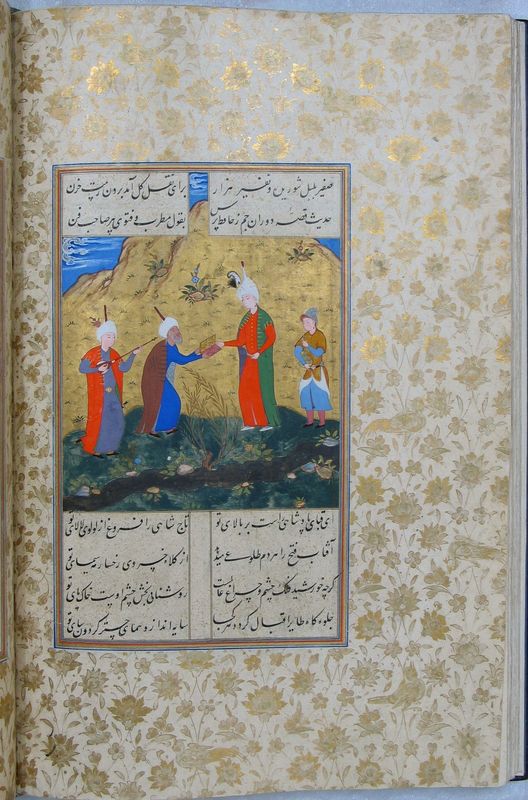 صفیر بلبل شوریده و نفیر هزار برای وصل گل آمد برون ز بیت حزن
حدیث قصه دوران جم ز حافظ پرس بقول مطرب و فتوی پیر صاحب فن
ای قبای پادشاهی راست بر بالای تو تاج شاهی را فروغ از لولوی لالای تو
آفتاب فتح را هر دم طلوعی میدهد از کلاه خسروی رخسار مه سیمای تو
گرچه خورشید فلک چشم و چراغ عالمست روشنائی بخش چشم اوست خاک پای تو
جلوه گاه طایر اقبال گردد هر کجا سایه اندازد همای چتر گردون سای تو